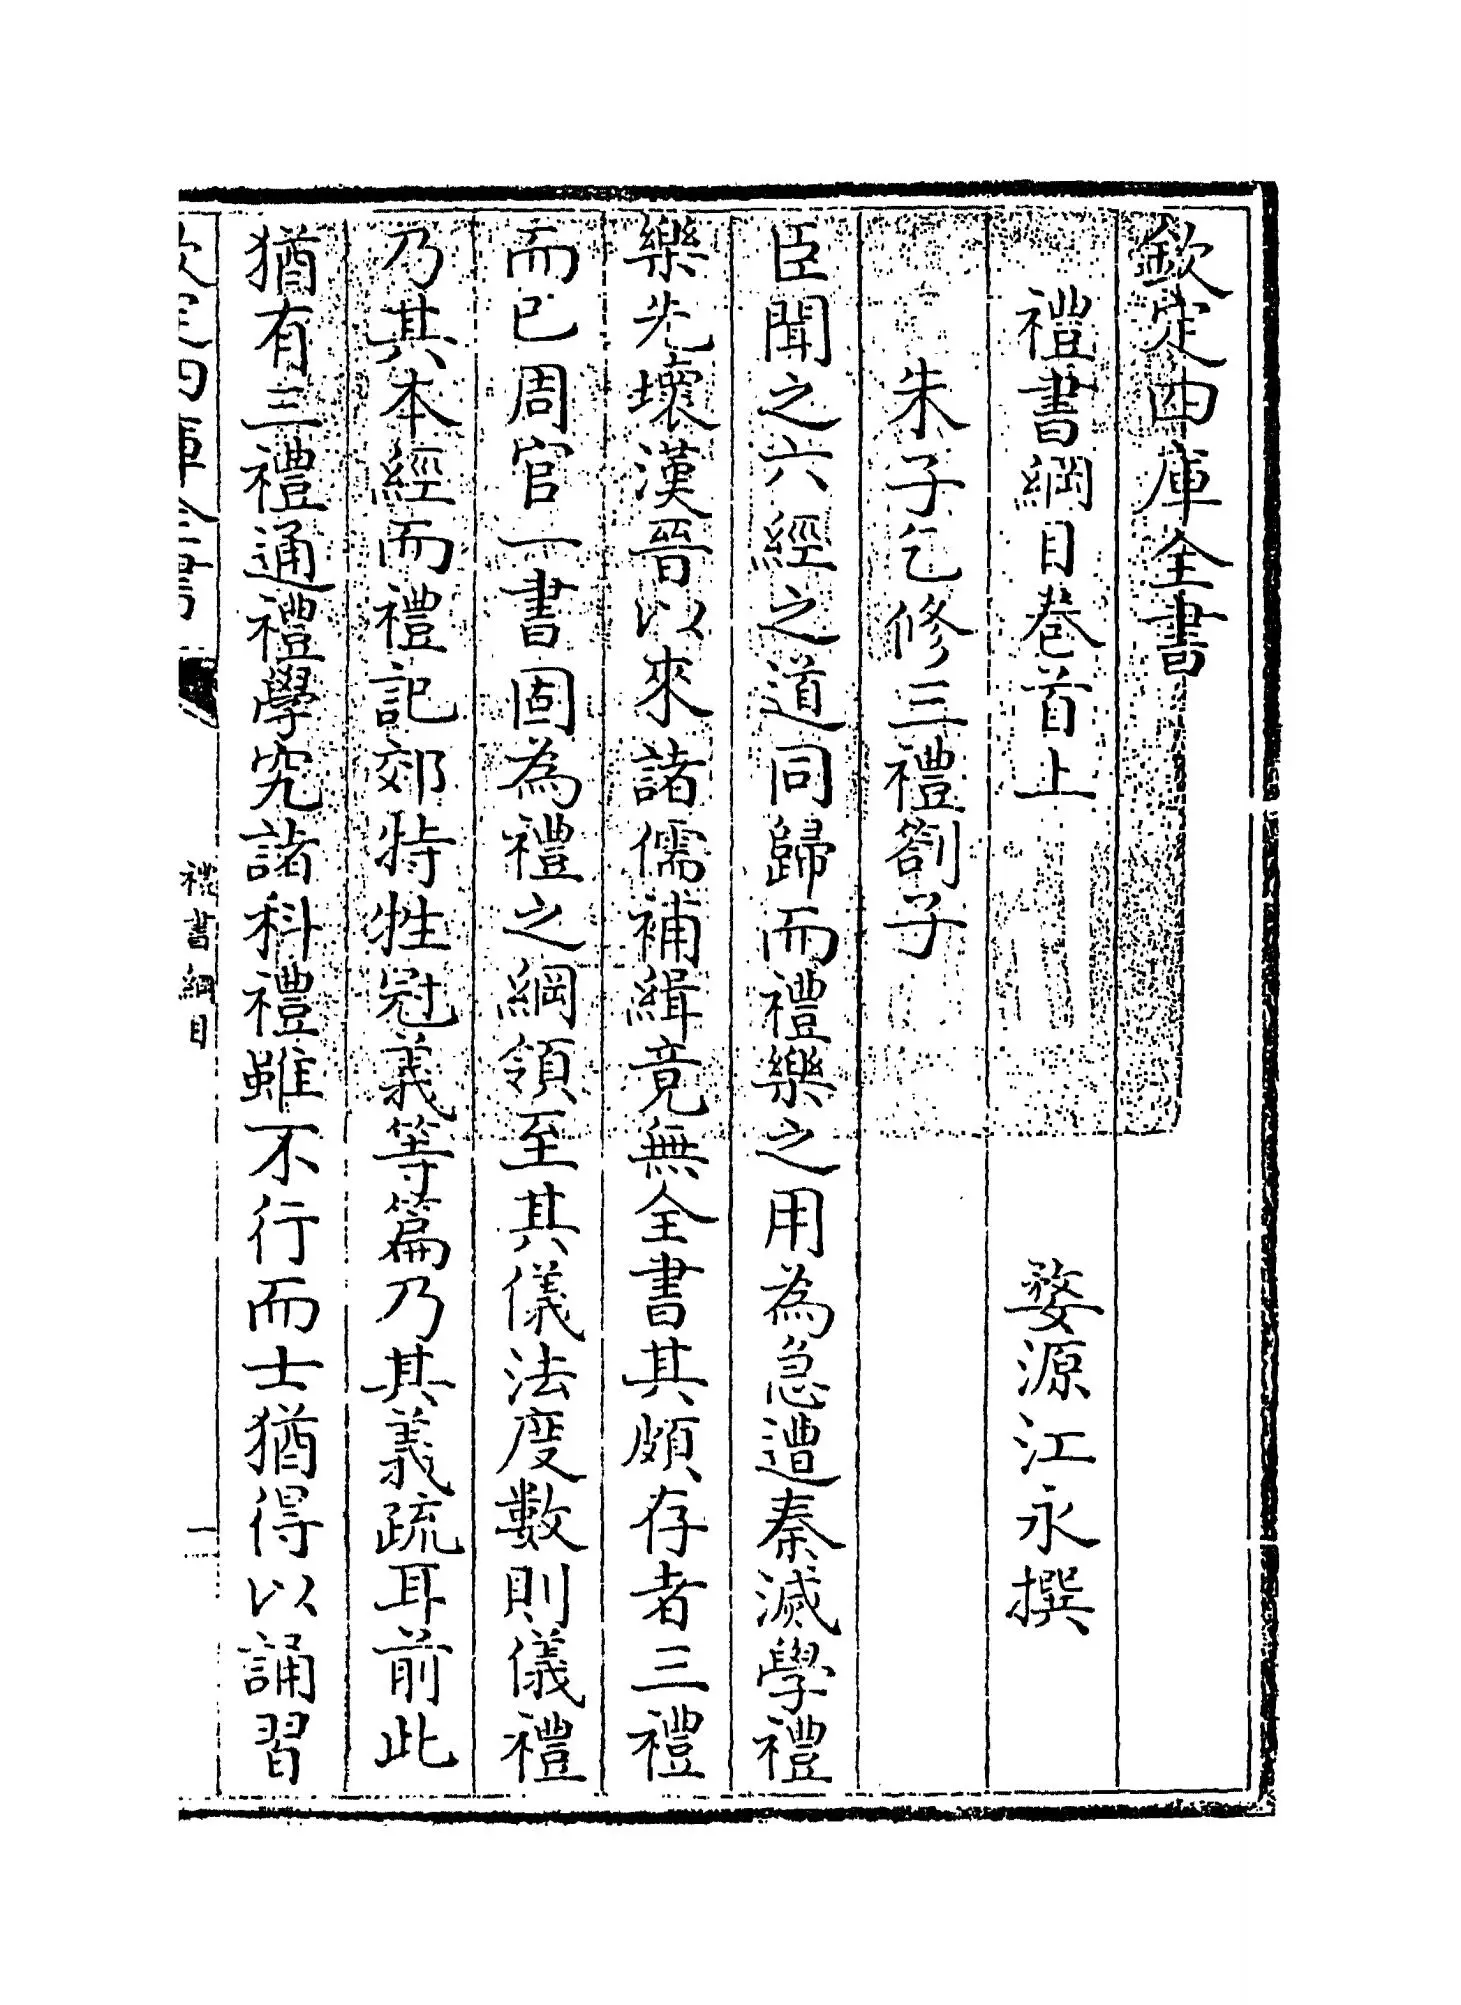 欽定四庫全書
禮書綱目卷首上
婺源江永撰
朱子乞修三禮劄子
臣聞之六經之道同歸而禮樂之用為急遭秦滅學禮
樂先壞漢晉以來諸儒補緝竟無全書其頗存者三禮
而已周官一書固為禮之綱領至其儀法度數則儀禮
乃其本經而禮記郊特牲冠義等篇乃其義疏耳前此
猶有三禮通禮學究諸科禮雖不行而士猶得以誦習
欽定四庫全書
禮書綱目
一